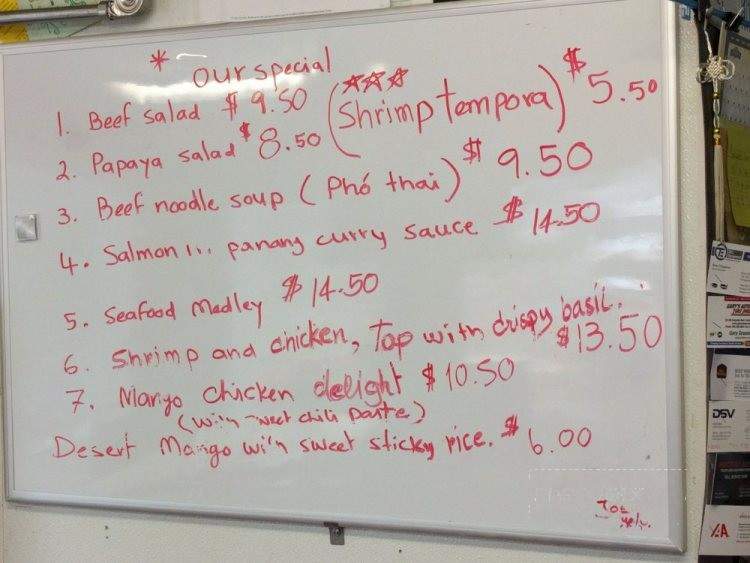 * our special
1. Beef salad $ 9.50 (Shrimp tempora) $ 5.50
2. Papaya salad $ 8.50
3. Beef noodle soup (Phó thai) $ 9.50
4. Salmon in panang curry sauce $ 14.50
5. Seafood Medley $ 14.50
6. Shrimp and chicken, Top with crispy basil.
$ 13.50
7. Mango chicken delight $ 10.50
(with sweet chili paste)
Desert Mango with sweet sticky rice. $ 6.00
DSV